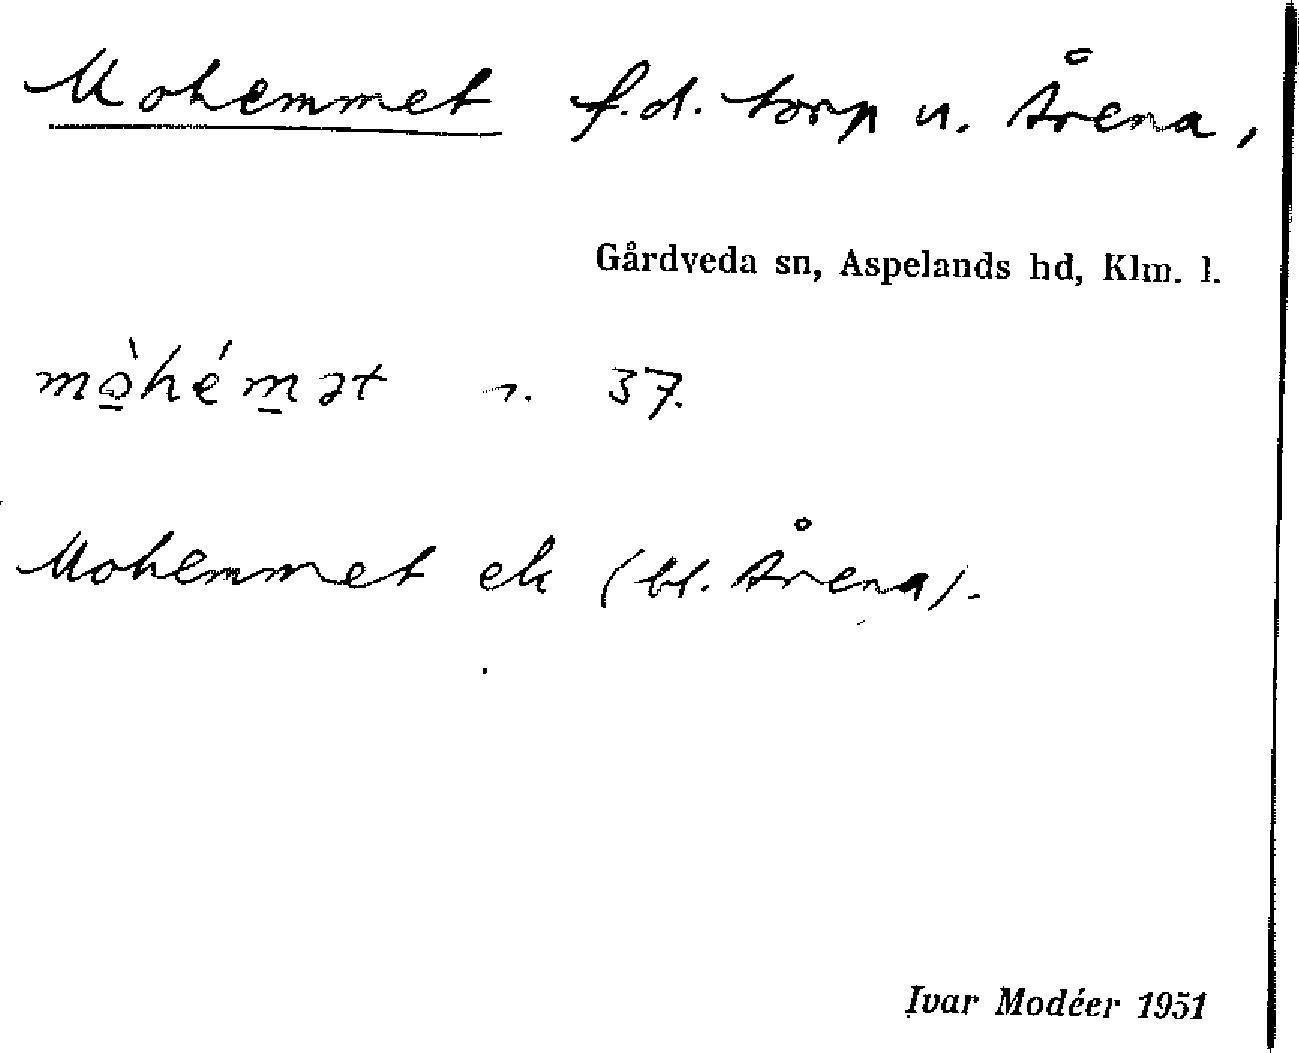 Mohemmet f.d. torp u. Årena,
Gårdveda sn, Aspelands hd, Klm. l.
mò̱hém̱ət n. 37.
Mohemmet ek (bl. Årena).
Ivar Modéer 1951